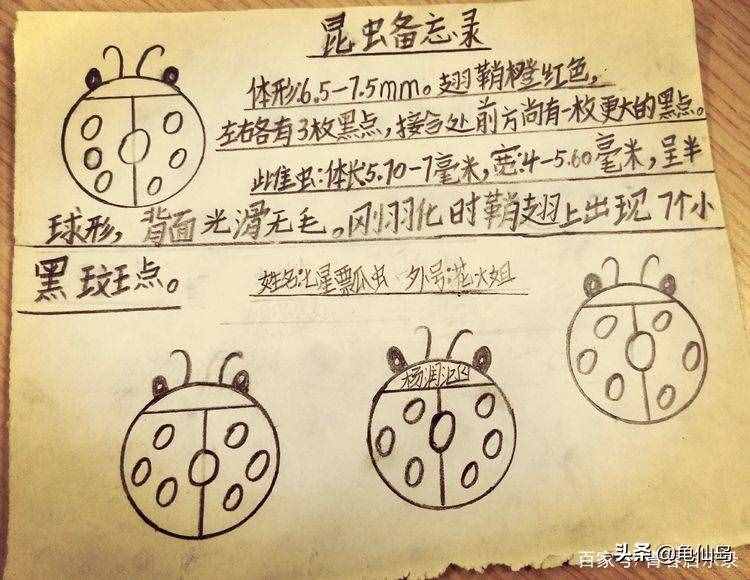 昆虫备忘录
体形:6.5-7.5mm。翅鞘橙红色,
左右各有3枚黑点,接合处前方尚有一枚更大的黑点。
雌虫:体长5.70-7毫米,宽:4-5.60毫米,呈半
球形,背面光滑无毛。刚羽化时鞘翅上出现7个小
黑斑点。
姓名:七星瓢虫 外号:花大姐
头条 @龟仙岛
百家号/青春启示录